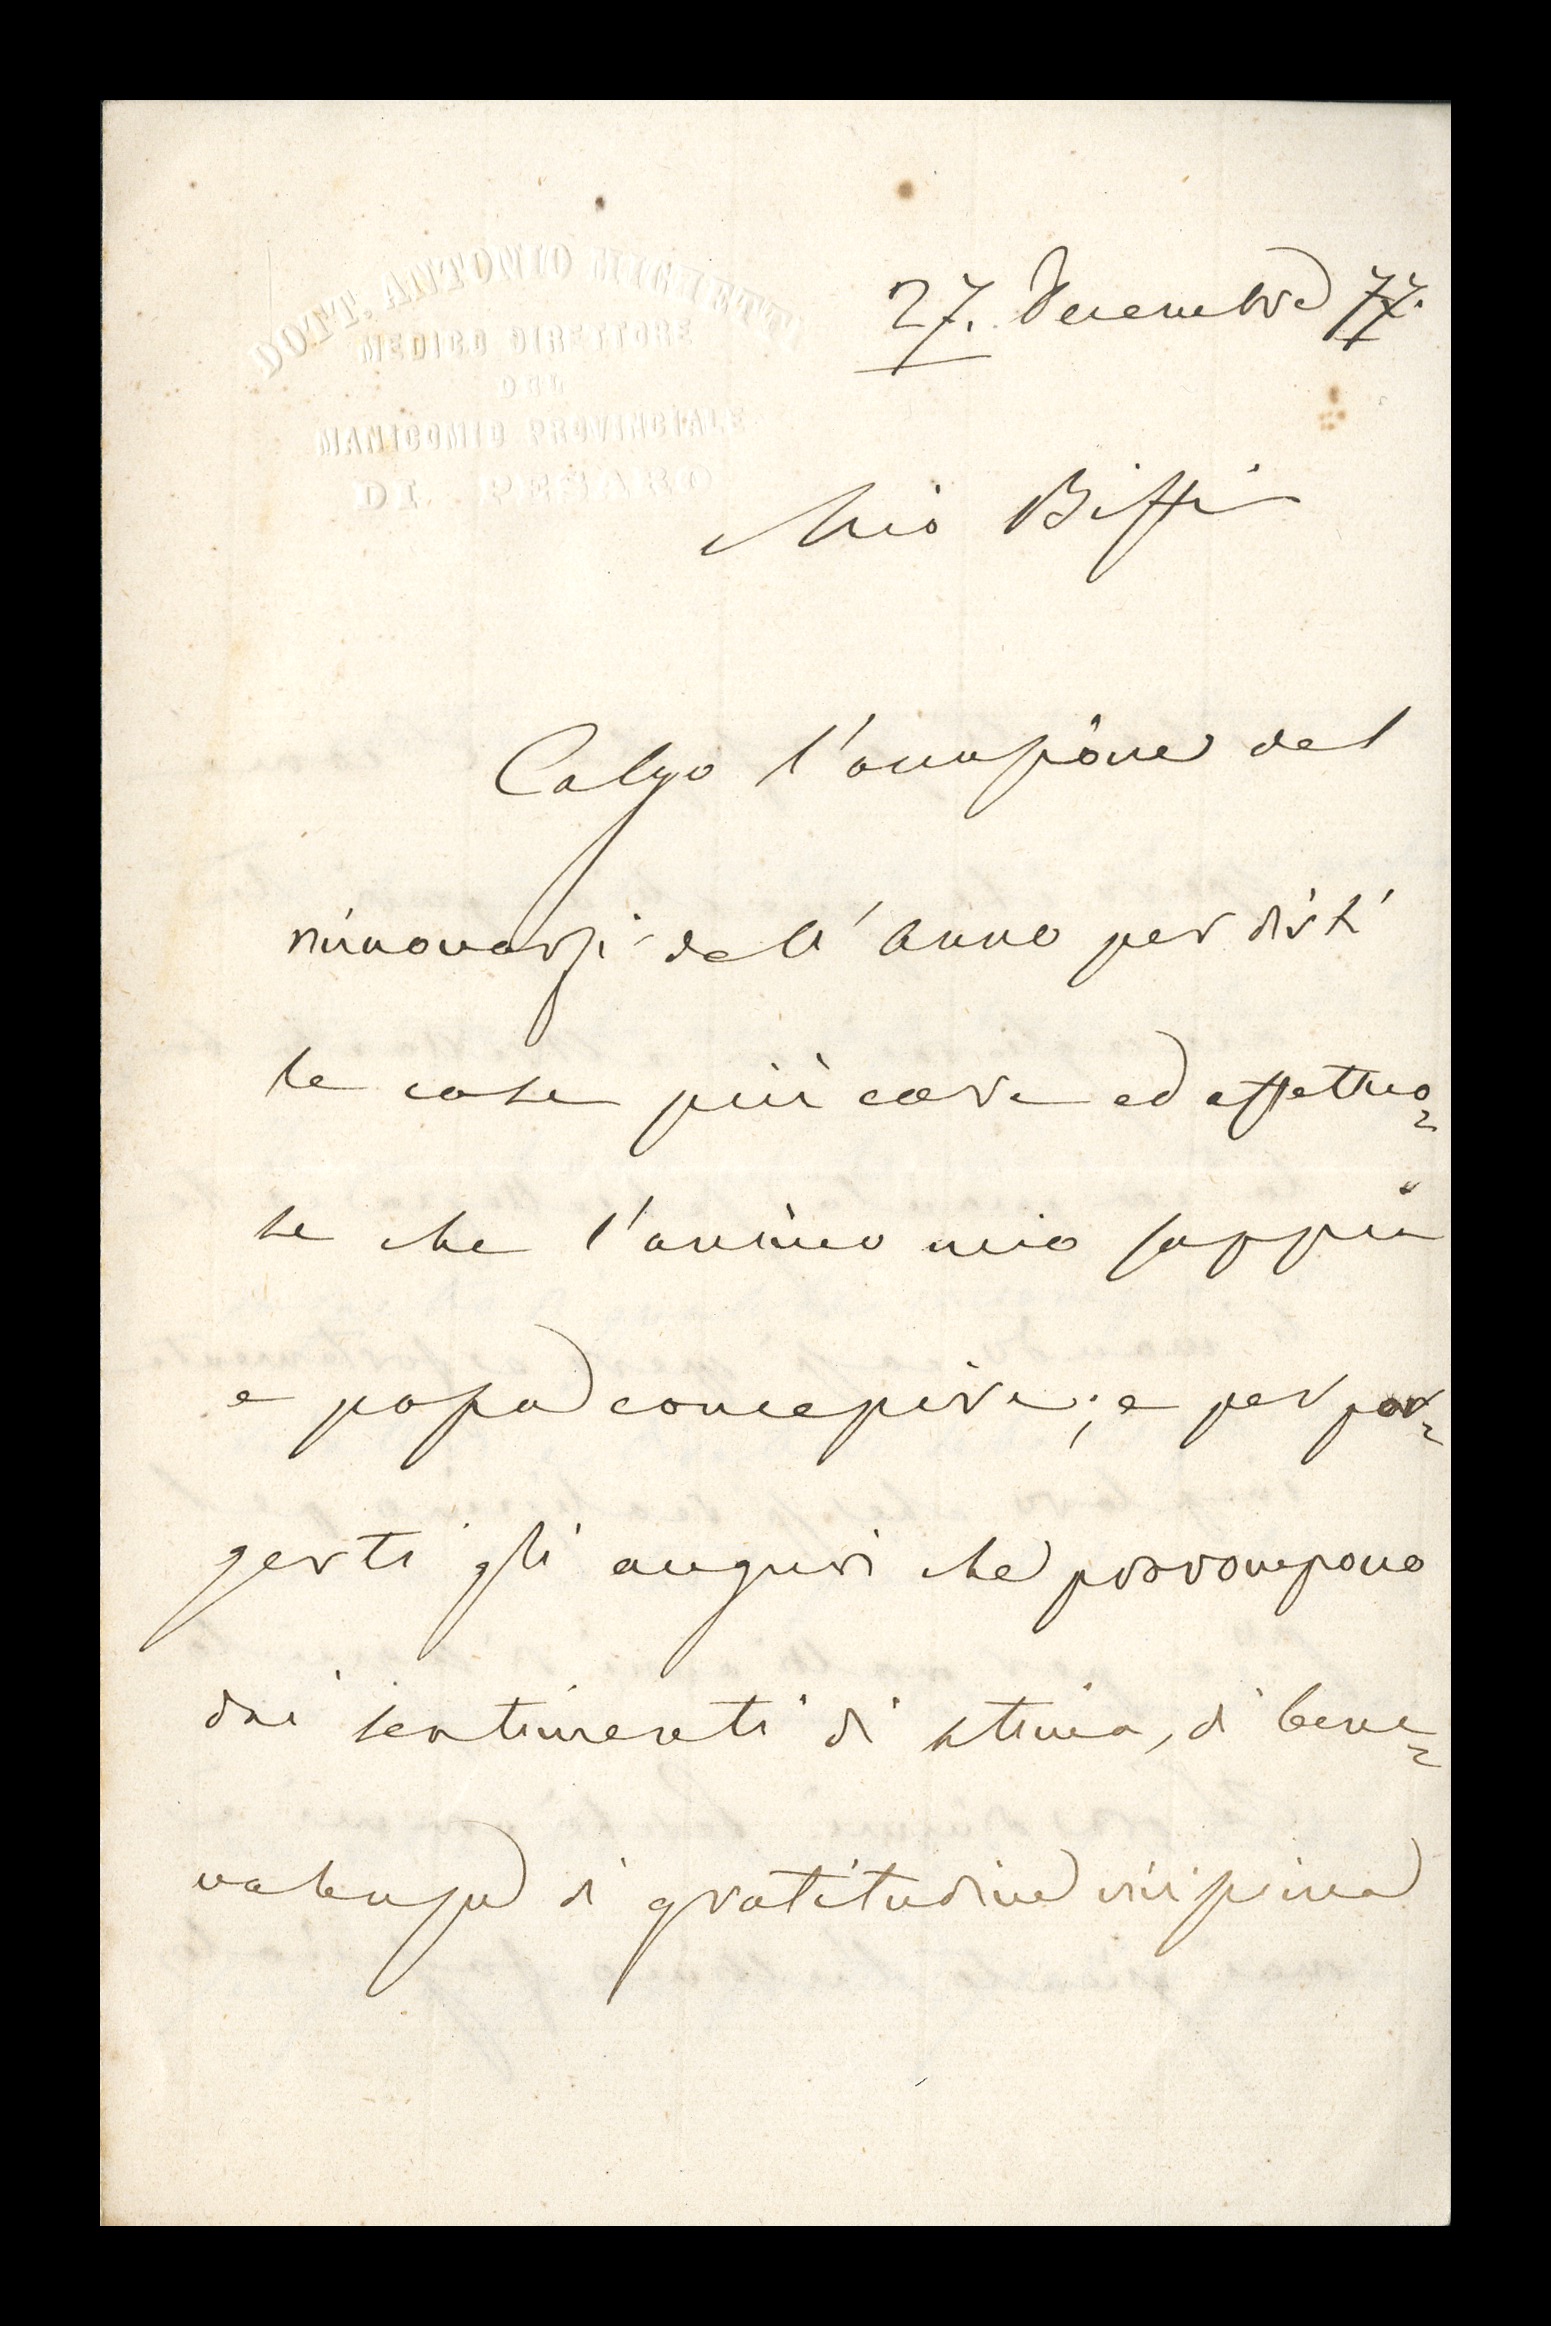 DOTT. ANTONIO MICHETTI
MEDICO DIRETTORE
DEL
MANICOMIO PROVINCIALE
DI PESARO
27. Decembre 77.
Mio Biffi
Colgo l'occasione del
rinnovarsi dell'anno per dirti
le cose più care ed affettuo=
se che l'animo mio sappia
e possa concepire; e per por=
gerti gli auguri che prorompono
dai sentimenti di stima, di bene=
volenza di gratitudine vivissima